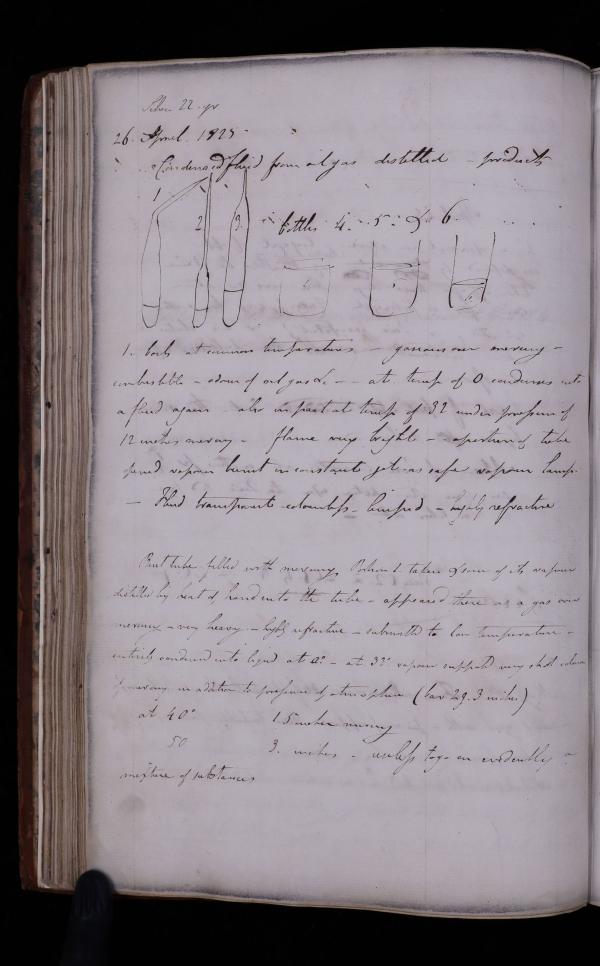 22
26. April. 1825
Condensed fluid from oil gas distilled - products
1
2 3. bottles 4. 5. & 6.
4 5 6
1. boils at common temperatures - gaseous over mercury -
combustible - odour of oil gas &c - at temp of 0 condenses into
a fluid again also in part at temp of 32 under pressure of
12 inches mercury - flame very bright - a portion of tube
opened vapour burnt in constant jet as safe vapour lamp.
- Fluid transparent colourless - limpid - highly refractive
Bent tube filled with mercury Portion 1 taken & some of its vapour
distilled by heat of hand into the tube - appeared there as a gas over
mercury - very heavy - highly refractive - submitted to low temperature -
entirely condensed into liquid at 0° - at 32° vapour supported very short column
of mercury in addition to pressure of atmosphere (bar 29.3 inches)
at 40° 1.5 inches mercury
50 3. inches - useless to go on evidently a
mixture of substances